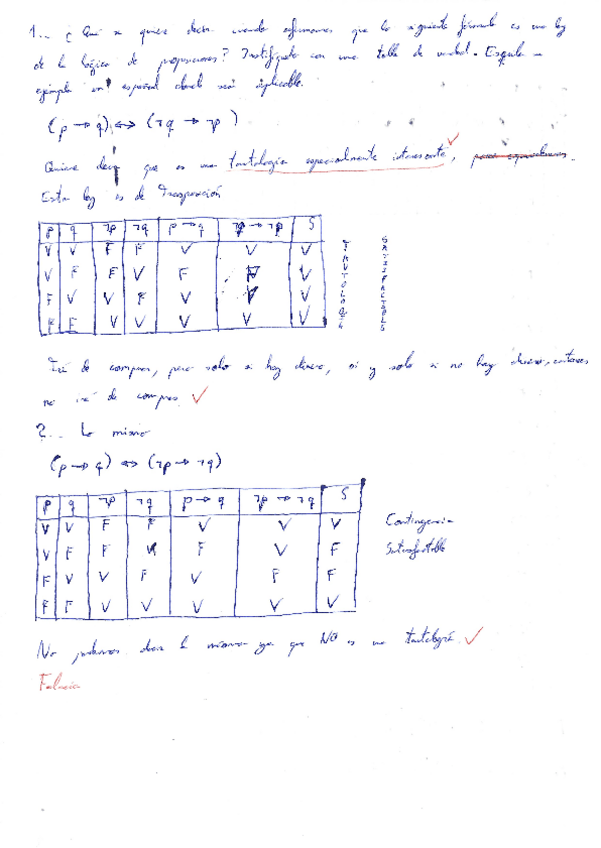 1.- ¿Qué se quiere decir cuando afirmamos que la siguiente fórmula es una ley
de la lógica de proposiciones? Justifíquelo con una tabla de verdad.
ejemplo en español donde sea aplicable.
(p → q) ↔ (¬q → ¬p)
Quiere decir que es una tautología especialmente interesante,
Esta ley es de Trasposición
p q ¬p ¬q p → q ¬q → ¬p S
V V F F V V V
V F F V F F V
F V V F V V V
F F V V V V V
TAUTOLOGÍA
SATISFACTIBLE
Iré de compras, pero solo si hay dinero, si y solo si no hay dinero, entonces
no iré de compras.
2.- Lo mismo
(p → q) ↔ (¬p → ¬q)
p q ¬p ¬q p → q ¬p → ¬q S
V V F F V V V Contingencia
V F F V F V F Satisfactible
F V V F V F F
F F V V V V V
No podemos decir lo mismo ya que NO es una tautología.
Falacia